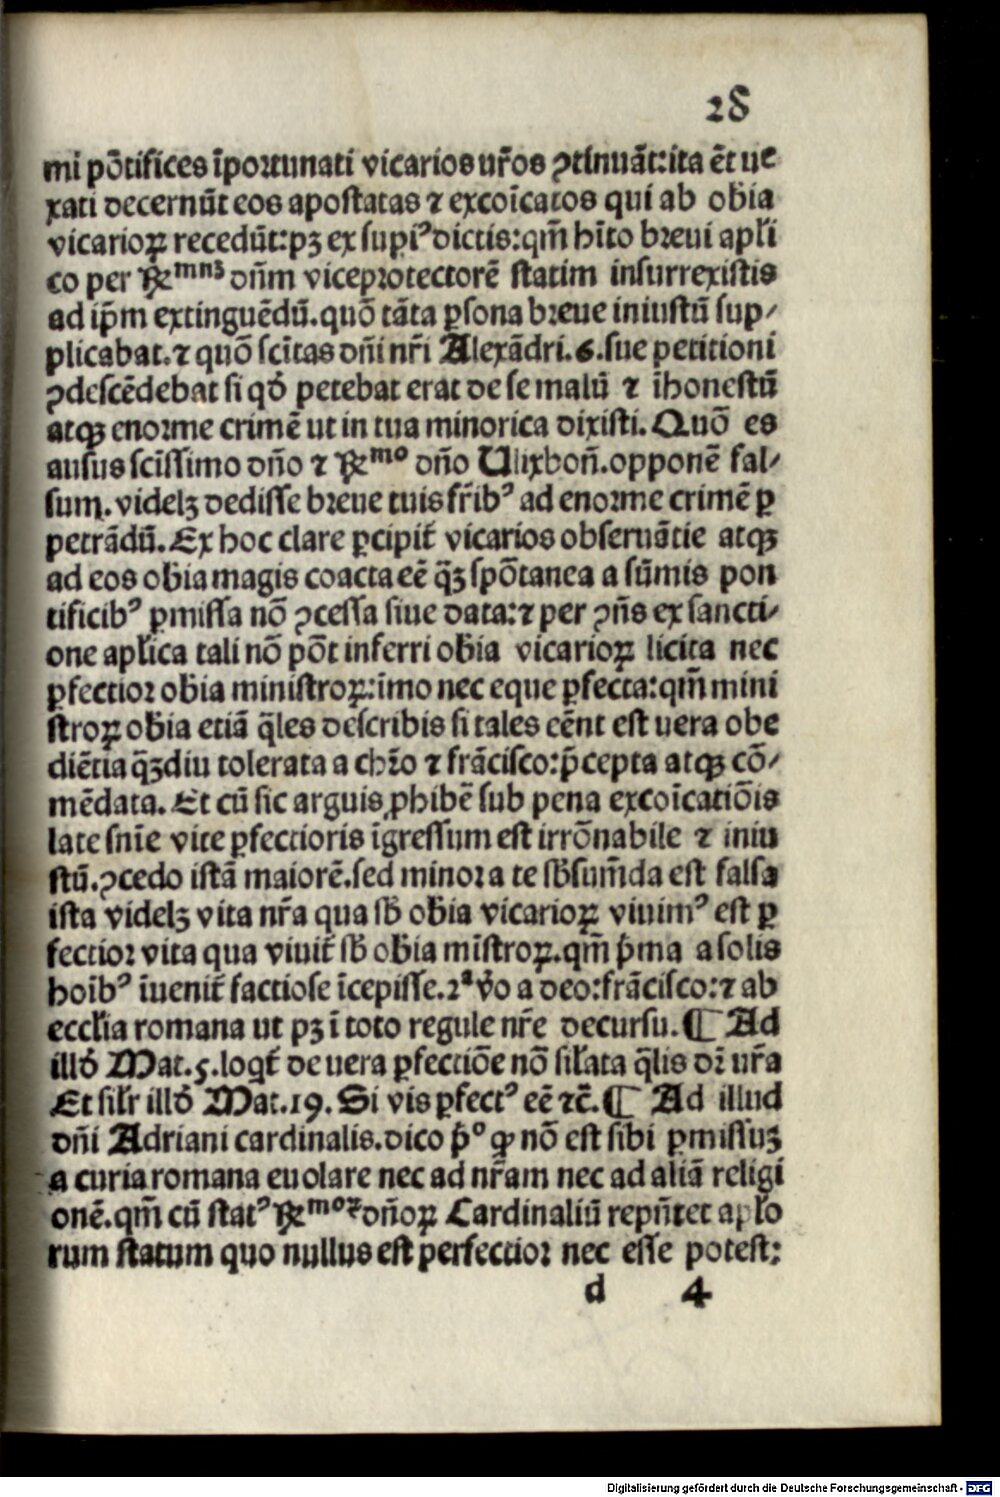 28
mi põtifices ĩportunati vicarios ur̃os ꝯtinuãt:ita ẽt ue
xati decernũt eos apostatas ⁊ excoĩcatos qui ab obīa
vicarioꝝ recedũt:pꝫ ex supiꝰ dictis:qm̃ hĩto breui apl̃i
co per R̃ᵐⁿꝫ dñm viceprotectorẽ statim insurrexistis
ad ip̃m extinguẽdũ.quõ tãta ꝑsona breue iniustũ sup⸗
plicabat.⁊ quõ scĩtas dñi nr̃i Alexãdri.6.sue petitioni
ꝯdescẽdebat si qđ petebat erat de se malũ ⁊ ĩhonestũ
atqꝫ enorme crimẽ ut in tua minorica dixisti. Quõ es
ausus scĩssimo dño ⁊ R̃ᵐᵒ dño Ulixboñ.opponẽ fal⸗
sum. videlꝫ dedisse breue tuis fr̃ibꝰ ad enorme crimẽ ꝑ
petrãdũ. Ex hoc clare ꝑcipit̃ vicarios obseruãtie atqꝫ
ad eos obīa magis coacta eẽ q̃ꝫ spõtanea a sũmis pon
tificibꝰ ꝑmissa nõ ꝯcessa siue data:⁊ per ꝯñs ex sancti⸗
one apl̃ica tali nõ põt inferri obīa vicarioꝝ licita nec
ꝑfectior obīa ministroꝝ:ĩmo nec eque ꝑfecta:qm̃ mini
stroꝝ obīa etiã q̃les describis si tales eẽnt est uera obe
diẽtia q̃ꝫdiu tolerata a chr̃o ⁊ frãcisco:p̃cepta atqꝫ cõ⸗
mẽdata. Et cũ sic arguis ꝓhibẽ sub pena excoĩcatiõis
late snĩe vite ꝑfectioris ĩgressum est irrõnabile ⁊ iniu
stũ.ꝯcedo istã maiorẽ.sed minor a te sb̃sum̃da est falsa
ista videlꝫ vita nr̃a qua sb̃ obīa vicarioꝝ viuimꝰ est ꝑ
fectior vita qua viuit̃ sb̃ obīa mĩstroꝝ.qm̃ p̃ma a solis
hoĩbꝰ ĩuenit̃ factiose ĩcepisse.2ª ṽo a deo:frãcisco:⁊ ab
eccl̃ia romana ut pꝫ ĩ toto regule nr̃e decursu.¶ Ad
illđ Mat.5.loqt̃ de uera ꝑfectiõe nõ sil̃ata q̃lis dr̃ ur̃a
Et sil̃r illđ Mat.19. Si vis ꝑfectꝰ eẽ ⁊c̃.¶ Ad illud
dñi Adriani cardinalis.dico p̃º ꝙ nõ est sibi ꝑmissuꝫ
a curia romana euolare nec ad nr̃am nec ad aliã religi
onẽ.qm̃ cũ statꝰ R̃ᵐᵒꝝ dñoꝝ Cardinaliũ repñtet apl̃o
rum statum quo nullus est perfectior nec esse potest:
d 4
Digitalisierung gefördert durch die Deutsche Forschungsgemeinschaft - DFG